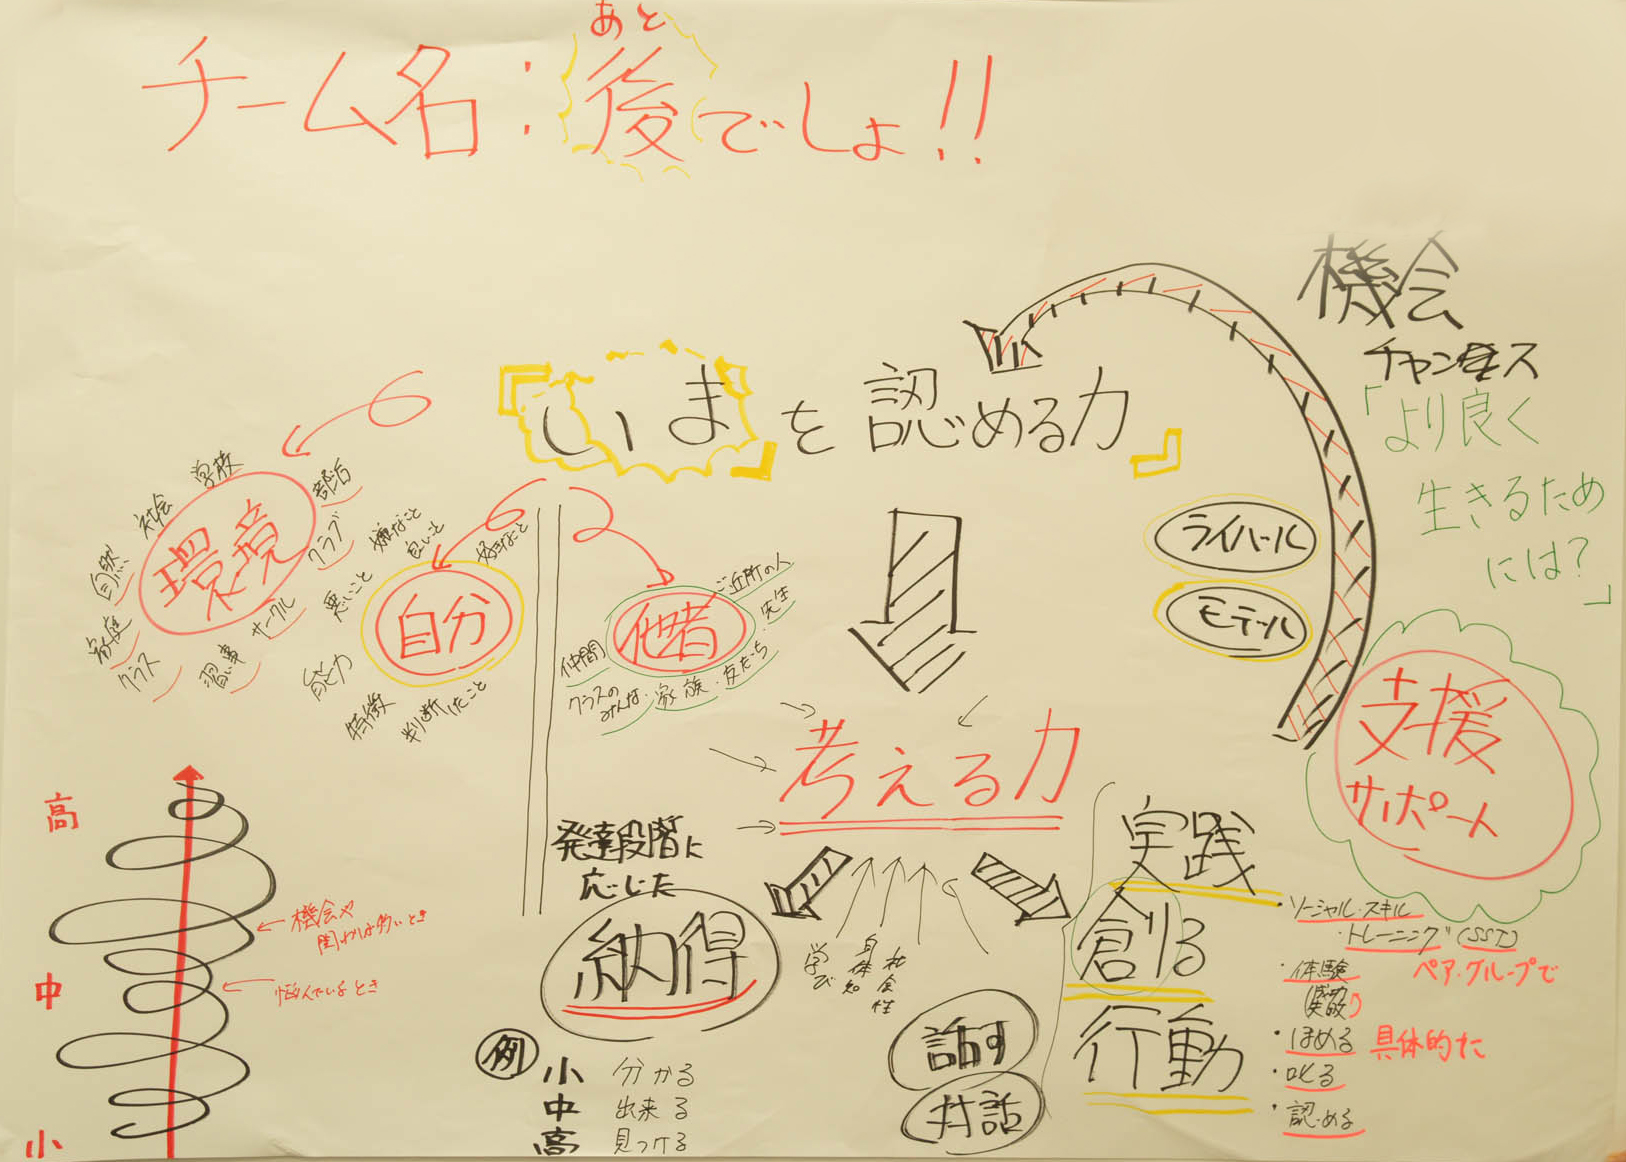 あと
チーム名:後でしょ!!
機会
チャンス
「より良く
生きるため
には?」
『いま』を認める力』
学校
社会
自然
家庭
クラス
習い事
サークル
クラブ
部活
環境
嫌なこと
良いこと
好きなこと
悪いこと
能力
特徴
判断したこと
自分
ご近所の人
先生
友だち
家族
クラスの
みんな
仲間
他者
ライバル
モデル
支援
サポート
考える力
発達段階に
応じた
納得
例
小 分かる
中 出来る
高 見つける
学び
身体知
社会性
話す
対話
実践
創る
行動
・ソーシャル・スキル
・トレーニング(SST)
・体験
ペア・グループで
・ほめる 具体的に
・叱る
・認める
高
中
小
機会や
関わりは多いとき
悩んでいるとき